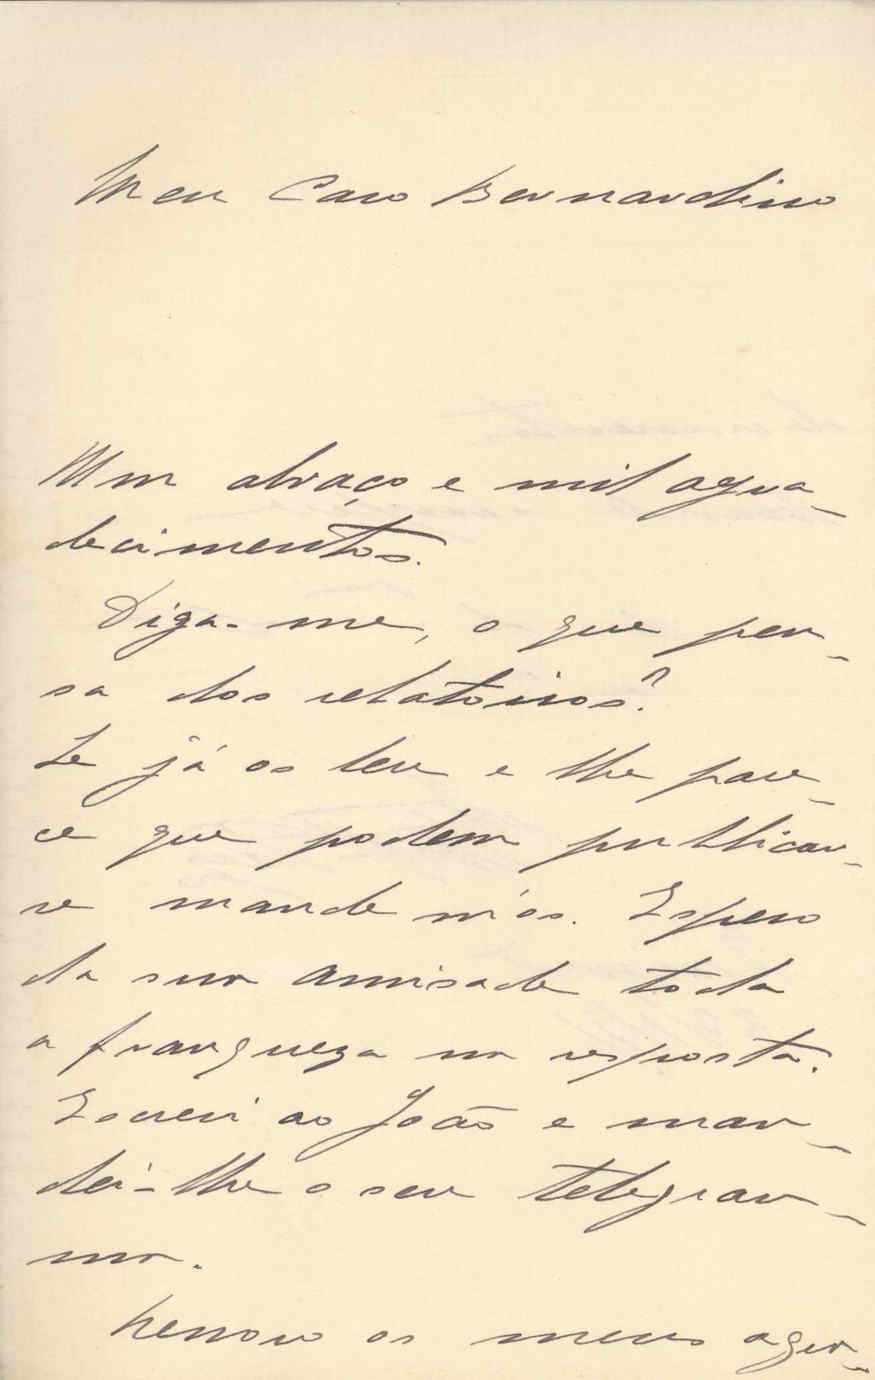 Meu Caro Bernardino
Um abraço e mil agra-
decimentos.
Diga-me, o que pen-
sa dos relatorios?
Se já os leu e lhe pare-
ce que podem publicar-
se mande-m'os. Espero
da sua amisade toda
a franqueza na resposta.
Escrevi ao João e man-
dei-lhe o seu telegram-
ma.
Renovo os meus agra-